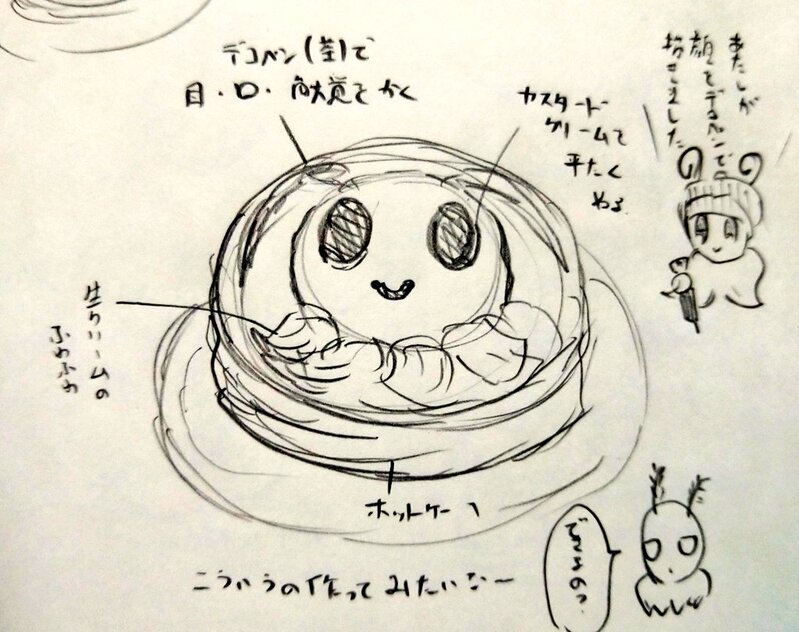 デコペン( )で
目・口・触覚をかく
カスタード
クリームで
平たく
ぬる
あたしが
顔をデコペンで
描きました
生クリームの
ふわふわ
ホットケーキ
こういうの作ってみたいな〜
できるの?